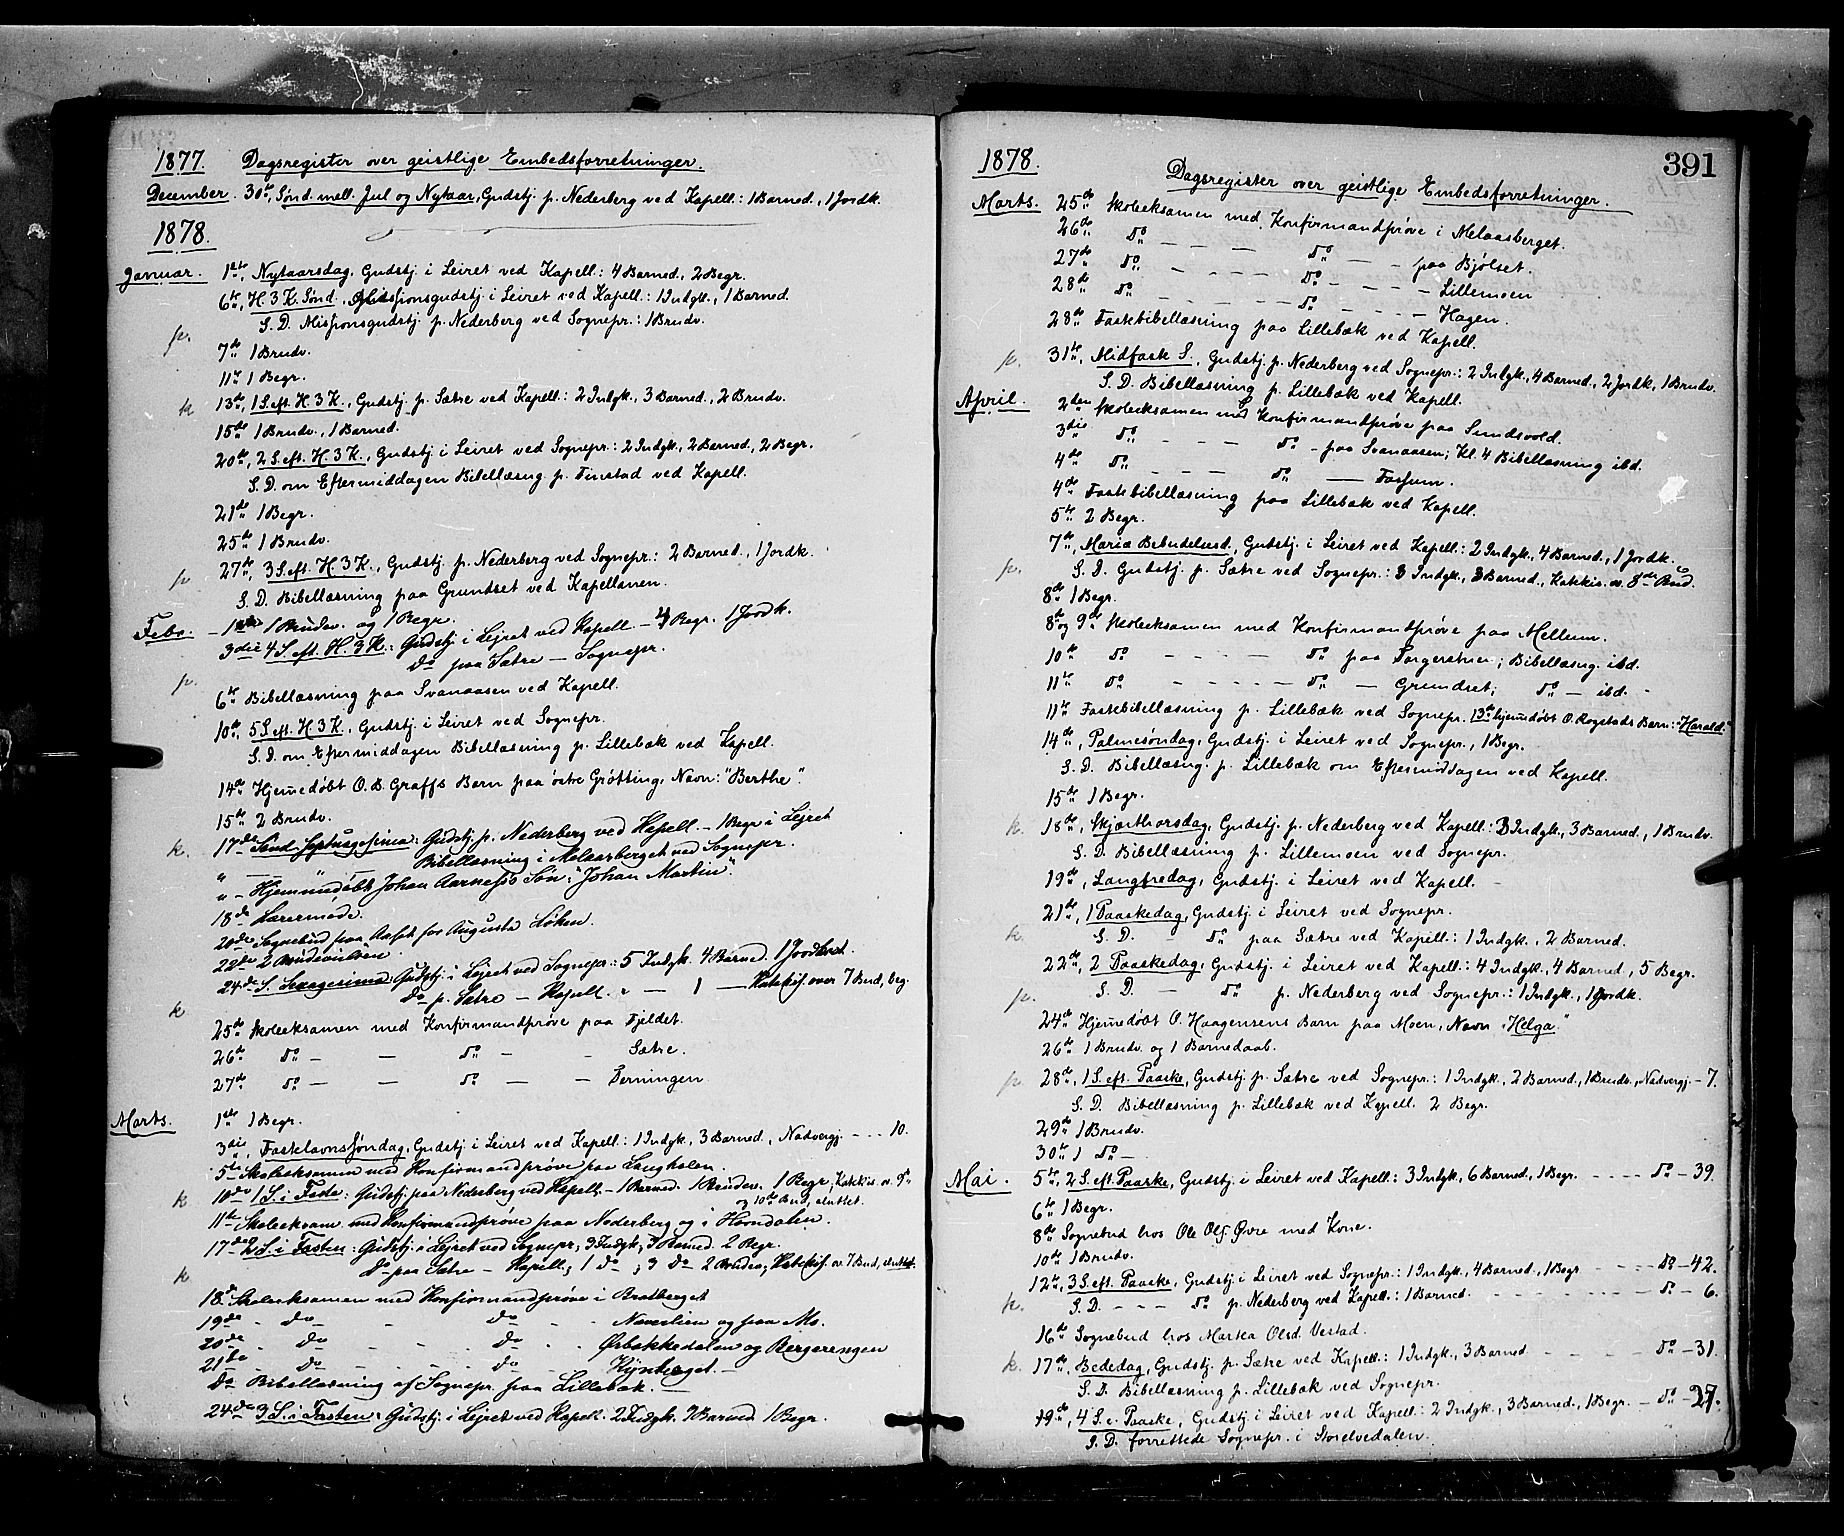 1877. Dagsregister over geistlige Embedsforretninger.
December. 30te, Sønd. mell. Jul og Nytaar, Gudstj. p. Nederberg ved Kapell.: 1 Barned., 1 Jordk.
1878.
Januar. 1ste, Nytaarsdag, Gudstj. i Leiret ved Kapell.: 4 Barned., 2 Begr.
6te, H. 3 K. Sønd., Missionsgudstj. i Leiret ved Kapell.: 1 Indgk., 1 Barned.
p. S. D. Missionsgudstj. p. Nederberg ved Sognepr.: 1 Brudv.
7de 1 Brudv.
11te 1 Begr.
k 13de, 1 S. eft. H. 3 K., Gudstj. p. Sætre ved Kapell.: 2 Indgk., 3 Barned., 2 Brudv.
15de 1 Brudv., 1 Barned.
20de, 2 S. eft. H. 3 K., Gudstj. i Leiret ved Sognepr.: 2 Indgk., 2 Barned., 2 Begr.
S. D. om Eftermiddagen Bibellæsng. p. Finstad ved Kapell.
21de 1 Begr.
25de 1 Brudv.
p 27de, 3 S. eft. H. 3 K., Gudstj. p. Nederberg ved Sognepr.: 2 Barned., 1 Jordk.
S. D. Bibellæsning paa Grundset ved Kapellanen.
Febr. 1ste 1 Brudev. og 1 Begr.
3die 4 S. eft. H. 3 K.: Gudstj. i Lejret ved Kapell – 4 Begr. 1 Jordk.
p. do paa Sætre – Sognepr.
6te Bibellæsning paa Svanaasen ved Kapell.
10de, 5 S. eft. H. 3 K., Gudstj. i Leiret ved Sognepr.
S. D. om Eftermiddagen Bibellæsning p. Lillebæk ved Kapell.
14de Hjemedøbt O. B. Graffs Barn paa østre Grøtting, Navn: "Berthe".
15de 2 Brudv.
k. 17de Sønd. Septuagesima: Gudstj. p. Nederberg ved Kapell. – 1 Begr i Lejret
" — — Bibellæsning i Melaasberget ved Sognepr.
" – Hjemmedøbt Johan Aarness's Søn: "Johan Martin".
18de Læremøde.
20de Sognebud paa Aaset for Augusta Løken.
22de 2 Brudevielser.
24de S. Sexagesima Gudstj. i Lejret ved Sognepr.: 5 Indgk. 4 Barned. 1 Jordkast.
k do p. Sætre – Kapell. " — 1 — Katekis. over 7 Bud, beg.
25de Skoleeksamen med Konfirmandprøve paa Fjeldet.
26de do – – do – – Sætre.
27de do – – do – – Terningen
Marts. 1ste 1 Begr.
3die, Fastelavnssøndag, Gudstj. i Leiret ved Kapell.: 1 Indgk., 3 Barned., Nadvergj. - - - 10.
5te Skoleeksamen med Konfirmandprøve paa Langholen.
k 10de 1 S. i Faste: Gudstj. paa Nederberg ved Kapell. – 1 Barned. 1 Brudev. 1 Begr, Katekis. o. 9de
og 10de Bud, sluttet.
11te Skoleeksam. med Konfirmandprøve paa Nederberg og i Horndalen.
17de 2 S. i Fasten: Gudstj. i Lejret ved Sognepr; 3 Indgk; 3 Barned. 2 Begr.
k do paa Sætre – Kapell; 1 do; 3 do 2 Brudev; Katekis. ov. 7 Bud, sluttet.
18de Skoleeksamen med Konfirmandprøve i Bratberget
19de - do - - do - - Noverlien og paa Mo.
20de - do - - do - - Ørbakkedalen og Bergerengen
21de - do - - do - - Kynberget.
do Bibellæsning af Sognepr. paa Lillebæk.
24de 3 S. i Fasten: Gudstj. i Lejret ved Kapell. 2 Indgk. 3 Barned 1 Begr.
391
1878. Dagsregister over geistlige Embedsforretninger.
Marts. 25de Skoleeksamen med Konfirmandprøve i Melaasberget.
26de do – – – do – – paa Bjølset.
27de do – – – do – – Lillemoen
28de do – – – do – – Hagen.
28de Fastebibellæsning paa Lillebæk ved Kapell.
p. 31te, Midfaste S., Gudstj. p. Nederberg ved Sognepr.: 2 Indgk., 4 Barned., 2 Jordk., 1 Brudv.
S. D. Bibellæsning p. Lillebæk ved Kapell.
April. 2den Skoleeksamen med Konfirmandprøve paa Sundsvold.
3die do – – – do – paa Svanaasen; Kl. 4 Bibellæsning ibd.
4de do – – – do — Fossum.
4de Fastebibellæsning paa Lillebæk ved Kapell.
5te 2 Begr.
7de, Mariæ Bebudelsesd., Gudstj. i Leiret ved Kapell.: 2 Indgk., 4 Barned., 1 Jordk.
p. S. D. Gudstj. p. Sætre ved Sognepr.: 3 Indgk., 3 Barned., Katekis. ov. 8de Bud.
8de 1 Begr.
8de og 9de Skoleeksamen med Konfirmandprøve paa Mellem.
10de do – – – do paa Torgerstuen; Bibellæsng. ibd.
11te do – – – do — Grundset; do – ibd.
11te Fastebibellæsning p. Lillebæk ved Sognepr. 13de hjemedøbt O. Rogstads Barn: "Harald."
14de, Palmesøndag, Gudstj. i Leiret ved Sognepr., 1 Begr.
S. D. Bibellæsng. p. Lillebæk om Eftermiddagen ved Kapell.
15de 1 Begr.
k. 18de, Skjærthorsdag, Gudstj. p. Nederberg ved Kapell.: 3 Indgk., 3 Barned., 1 Brudv.
S. D. Bibellæsning p. Lillemoen ved Sognepr.
19de, Langfredag, Gudstj. i Leiret ved Kapell.
21de, 1 Paaskedag, Gudstj. i Leiret ved Sognepr.
k. S. D. – do paa Sætre ved Kapell.: 1 Indgk., 2 Barned.
22de, 2 Paaskedag, Gudstj. i Leiret ved Kapell.: 4 Indgk., 4 Barned., 5 Begr.
p. S. D. – do p. Nederberg ved Sognepr.: 1 Indgk., 1 Jordk.
24de Hjemedøbt O. Haagensens Barn paa Moen, Navn "Helga".
26de 1 Brudv. og 1 Barnedaab.
p. 28de, 1 S. eft. Paaske, Gudstj. p. Sætre ved Sognepr.: 1 Indgk., 2 Barned., 1 Brudv., Nadvergj. – 7.
S. D. Bibellæsning p. Lillebæk ved Kapell. 2 Begr.
29de 1 Brudv.
30te 1 do –
Mai. 5te, 2 S. eft. Paaske, Gudstj. i Leiret ved Kapell.: 3 Indgk., 6 Barned., 1 Begr. - - - - do – 39.
6te 1 Begr.
8de Sognebud hos Ole Ols. Øvre med Kone.
10de 1 Brudv.
12te, 3 S. eft. Paaske, Gudstj. i Leiret ved Sognepr.: 1 Indgk., 4 Barned., 1 Begr - - - - do – 42.
k. S. D. - - - do p. Nederberg ved Kapell.: 1 Barned. - - - - do – 6.
16de Sognebud hos Marka Olsd. Vestad.
k. 17de, Bededag, Gudstj. p. Sætre ved Kapell.: 1 Indgk., 3 Barned - - - - do – 31.
S. D. Bibellæsning p. Lillebæk ved Sognepr.
19de, 4 S. e. Paaske, Gudstj. i Leiret ved Kapell.: 2 Indgk., 3 Barned., 1 Begr. – do – 27.
S. D. forrettede Sognepr. i Storelvedalen.